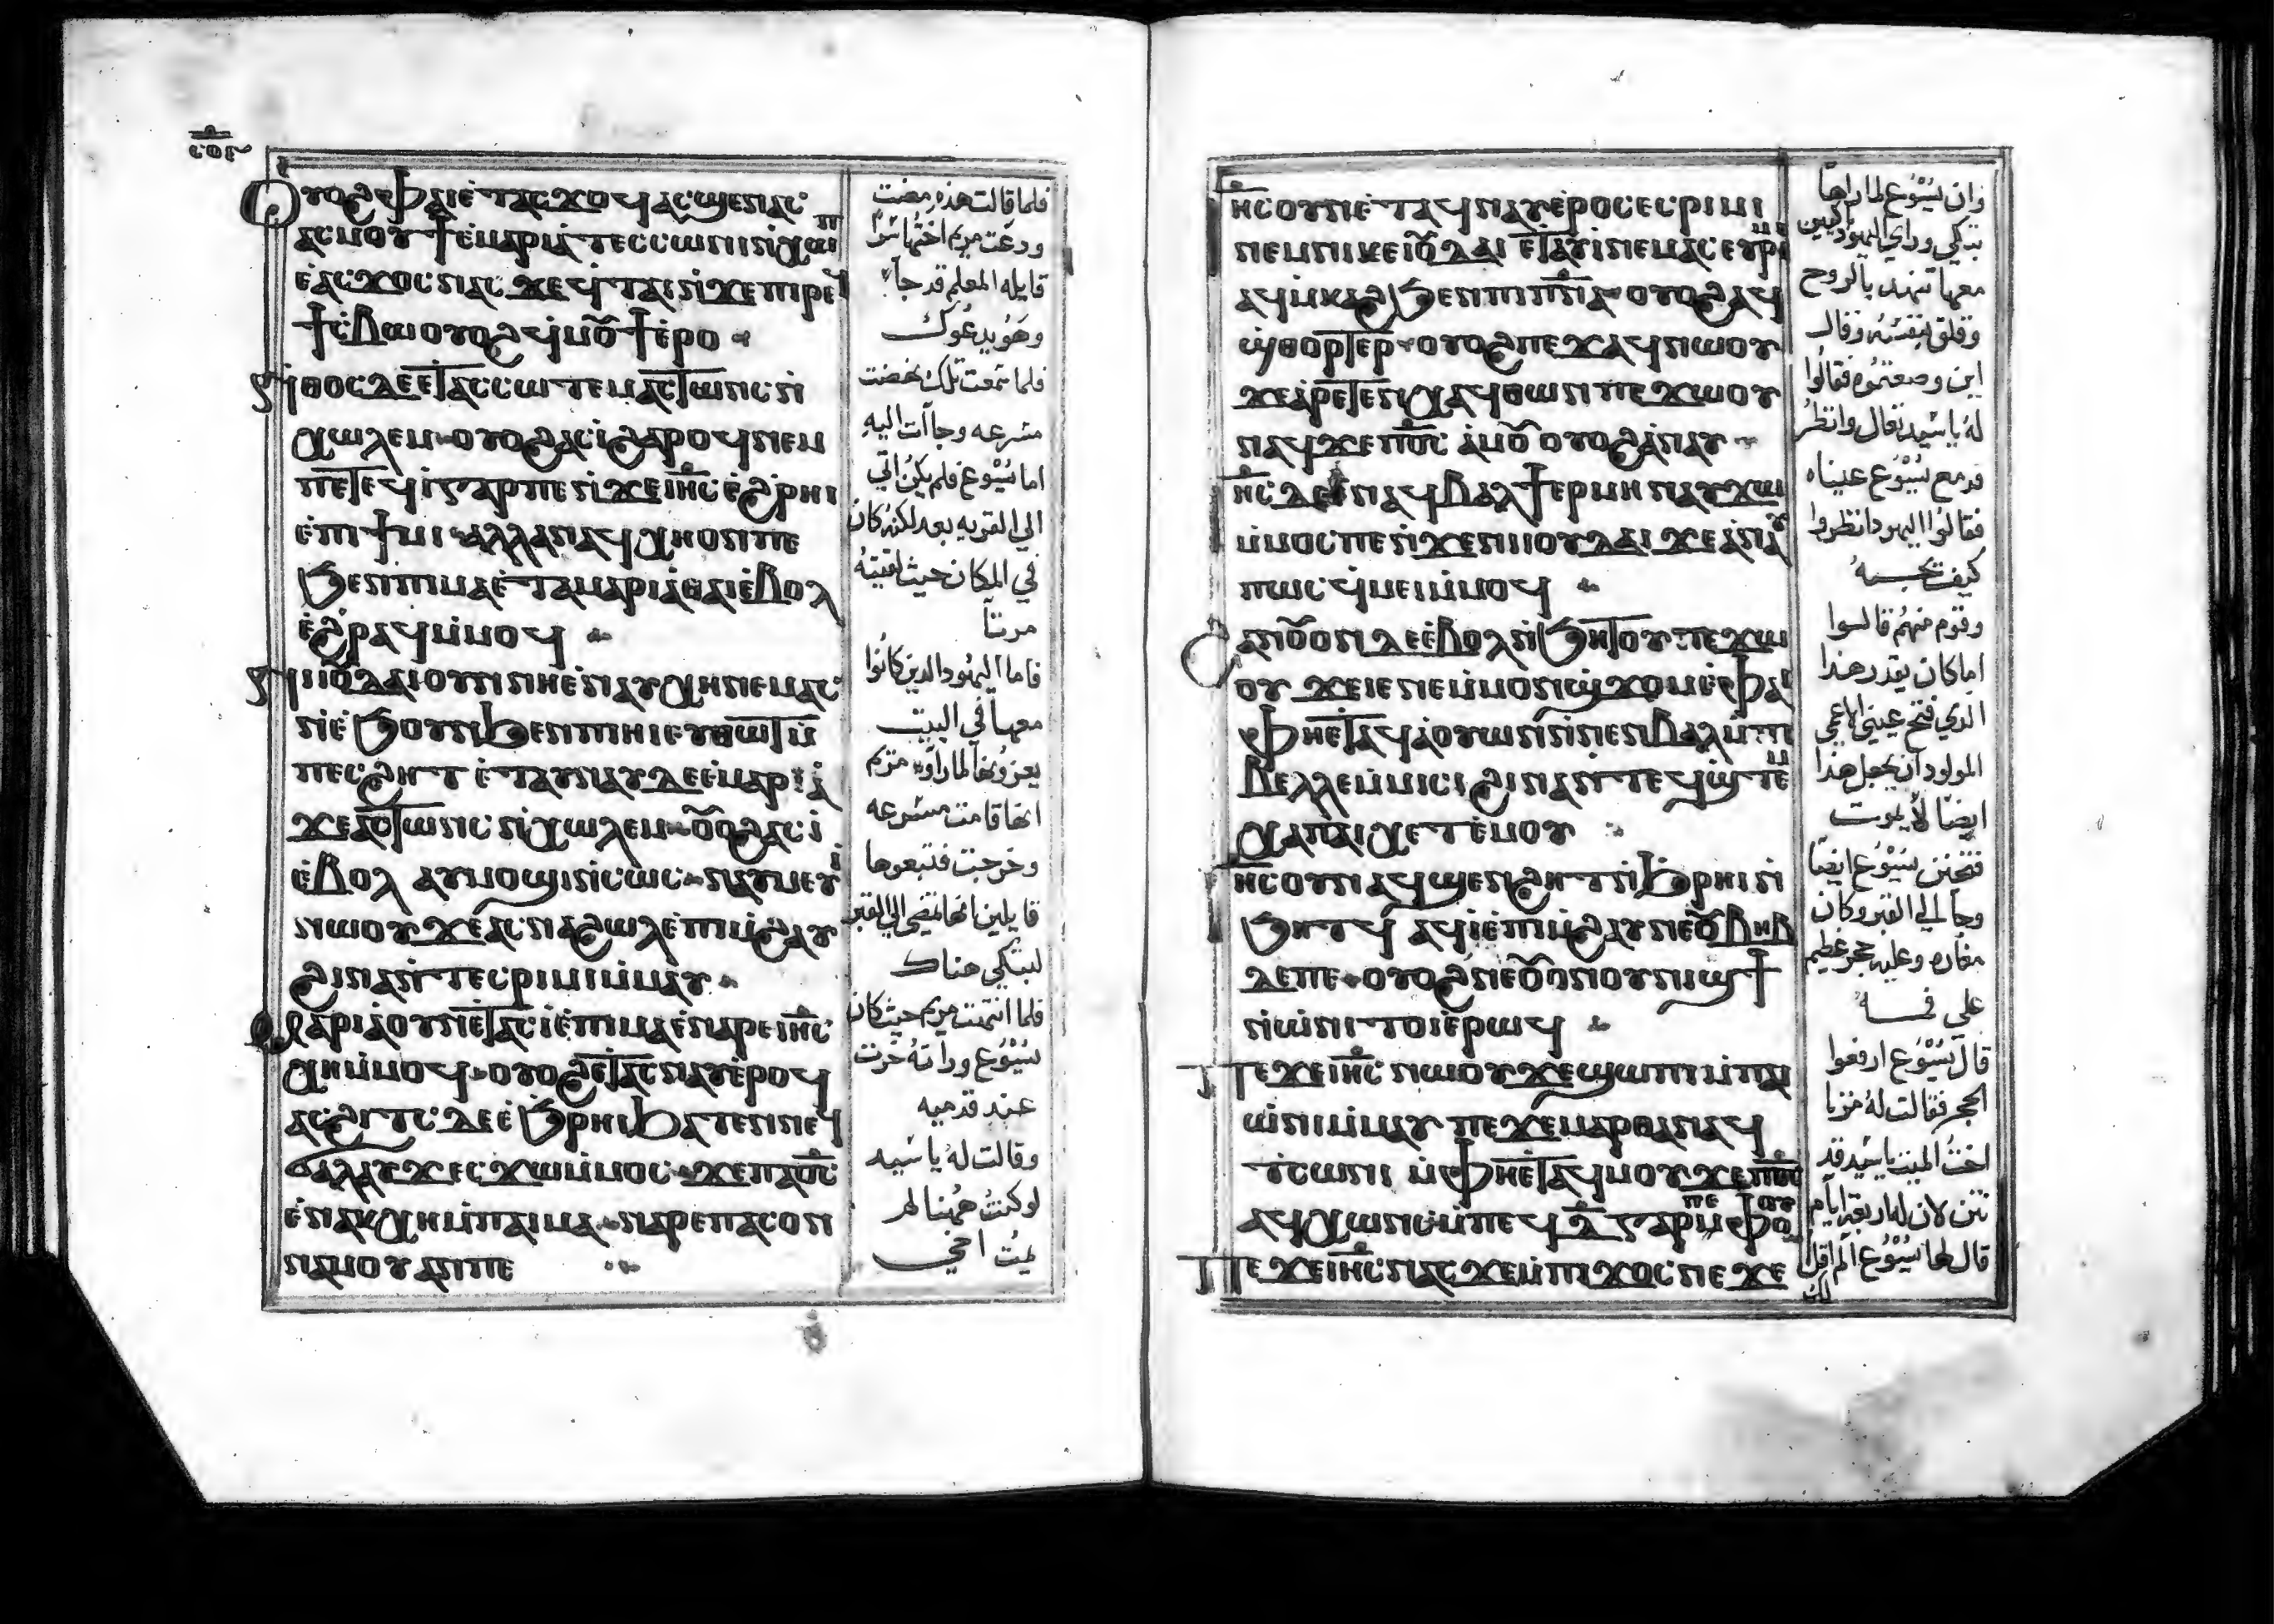 ⲟⲩⲟϩ ⲫⲁⲓ ⲉ̇ⲧⲁⲥϫⲟϥ ⲁⲥϣⲉⲛⲁⲥ
ⲁⲥⲙⲟⲩϯ ⲉ̇ⲙⲁⲣⲓⲁ̇ ⲧⲉⲥⲥⲱⲛⲓ ⲛ̇ⲭⲱⲡ
ⲉ̇ⲁⲥϫⲟⲥ ⲛⲁⲥ ϫⲉ ϥ̇ⲧⲁⲓ ⲛ̇ϫⲉ ⲡⲓⲣⲉϥ
ϯⲥ̇ⲃⲱ ⲟⲩⲟϩ ϥ̇ⲙⲟ̅ϯ ⲉ̇ⲣⲟ
ⲛ̇ⲑⲟⲥ ⲇⲉ ⲉⲧⲁⲥⲥⲱⲧⲉⲙ ⲁⲥⲧⲱⲛⲥ ⲛ̇
ⲭⲱⲗⲉⲙ ⲟⲩⲟϩ ⲁⲥⲓ̇ ϩⲁⲣⲟϥ ⲛⲉⲙ
ⲡⲉⲧⲉϥⲓ̇ ⲅⲁⲣ ⲡⲉ ⲛ̇ϫⲉ ⲓⲏ̅ⲥ ⲉ̇ϩ̇ⲣⲏⲓ
ⲉ̇ⲡⲓϯⲙⲓ ⲁⲗⲗⲁ ⲛⲁϥⲭⲏ ⲟⲛ ⲡⲉ
ϧⲉⲛ ⲡⲓⲙⲁ ⲉ̇ⲧⲁ ⲙⲁⲣⲓⲁ̇ⲑⲁ ⲓ̇ ⲉ̇ⲃⲟⲗ
ⲉ̇ϩ̇ⲣⲁϥ ⲙ̇ⲙⲟϥ
ⲛⲓⲓⲟ̅ⲇⲁⲓ ⲟⲩⲛ ⲛⲏ ⲉ̇ⲛⲁⲩⲭⲏ ⲛⲉⲙⲁⲥ
ⲛ̇ⲉ̇ϧⲟⲩⲛ ϧⲉⲛ ⲡⲓⲏⲓ ⲉⲩⲑⲱⲧ ⲙ̇
ⲡⲉⲥϩⲏⲧ ⲉ̇ⲧⲁⲩⲛⲁⲩ ⲇⲉ ⲉ̇ⲙⲁⲣⲓⲁ̇
ϫⲉ ⲁⲥⲧⲱⲛⲥ ⲛ̇ⲭⲱⲗⲉⲙ ⲟ̅ⲟϩ ⲁⲥⲓ̇
ⲉ̇ⲃⲟⲗ ⲁⲩⲙⲟϣⲓ ⲛ̇ⲥⲱⲥ ⲛⲁⲩⲙⲉⲩⲓ̇
ⲛⲱⲟⲩ ϫⲉ ⲁⲥⲛⲁϩⲱⲗ ⲉ̇ⲡⲓⲙ̇ϩⲁⲩ
ϩⲓⲛⲁ ⲛ̇ⲧⲉⲥⲣⲓⲙⲓ ⲙ̇ⲙⲁⲩ
ⲙⲁⲣⲓⲁ̇ ⲟⲩⲛ ⲉ̇ⲧⲁⲥⲓ̇ ⲉ̇ⲡⲓⲙⲁ ⲉ̇ⲛⲁⲣⲉ ⲓⲏ̅ⲥ
ⲭⲏ ⲙ̇ⲙⲟϥ ⲟⲩⲟϩ ⲉ̇ⲧⲁⲥⲛⲁⲩ ⲉ̇ⲣⲟϥ
ⲁⲥϩⲓⲧⲥ ⲇⲉ ⲉ̇ϧⲣⲏⲓ ϧⲁⲧⲉⲛ ⲛⲉϥ
ϭⲁⲗⲁⲩϫ ⲉⲥϫⲱ ⲙ̇ⲙⲟⲥ ϫⲉ ⲡⲁϭ̅ⲥ
ⲉ̇ⲛⲁⲕⲭⲏ ⲙ̇ⲡⲁⲓⲙⲁ ⲛⲁⲣⲉ ⲡⲁⲥⲟⲛ
ⲛⲁⲙⲟⲩ ⲁⲛ ⲡⲉ
فلما قالت هذه مضت
ودعت مريم اختها سرًا
قايله المعلم قد جآ
وهو يدعوك
فلما سمعت تلك نهضت
مسرعه وجاآت اليه
اما يسوع فلم يكن اتي
الي القريه بعد لكنه كان
في المكان حيث لقيته
مرتآ
فاما اليهود الدين كانوا
معها في البيت
يعزونها لما راوا مريم
انها قامت مسرعه
وخرجت فتبعوها
قايلين انها تمضي الي القبر
لتبكي هناك
فلما انتهت مريم حيث كان
يسوع وراته خرت
عند قدميه
وقالت له يا سيد
لو كنت ههنا لم
يمت اخي
ⲓⲏ̅ⲥ ⲟⲩⲛ ⲉ̇ⲧⲁϥⲛⲁⲩ ⲉ̇ⲣⲟⲥ ⲉⲥⲣⲓⲙⲓ
ⲛⲉⲙ ⲛⲓⲕⲉⲓⲟ̅ⲇⲁⲓ ⲉⲧⲁⲩⲓ̇ ⲛⲉⲙⲁⲥ ⲉⲩⲣⲓⲙⲓ
ⲁϥⲙ̇ⲕⲁϩ ϧⲉⲛ ⲡⲓⲡⲛ̅ⲁ ⲟⲩⲟϩ ⲁϥ
ϣ̇ⲑⲟⲣⲧⲉⲣ ⲟⲩⲟϩ ⲡⲉϫⲁϥ ⲛⲱⲟⲩ
ϫⲉ ⲁ̇ⲣⲉⲧⲉⲛⲭⲁϥ ⲑⲱⲛ ⲡⲉϫⲱⲟⲩ
ⲛⲁϥ ϫⲉ ⲡϭ̅ⲥ ⲁ̇ⲙⲟ̅ ⲟⲩⲟϩ ⲁ̇ⲛⲁⲩ
ⲓⲏ̅ⲥ ⲇⲉ ⲛⲁϥⲃⲁⲗ ϯⲉⲣⲙⲏ ⲛⲁⲩϫⲱ
ⲙ̇ⲙⲟⲥ ⲡⲉ ⲛ̇ϫⲉ ⲛⲓⲓⲟⲩⲇⲁⲓ ϫⲉ ⲁ̇ⲛⲁⲩ
ⲡⲱⲥ ϥ̇ⲙⲉⲓ ⲙ̇ⲙⲟϥ
ϩⲁⲛⲟ̅ⲟⲛ ⲇⲉ ⲉ̇ⲃⲟⲗ ⲛ̇ϧⲏⲧⲟⲩ ⲡⲉϫⲱ
ⲟⲩ ϫⲉ ⲓⲉ ⲛⲉ ⲙ̇ⲙⲟⲛ ϣ̇ϫⲟⲙ ⲉ̇ⲫⲁⲓ
ⲫⲏ ⲉⲧⲁϥⲁ̇ⲟⲩⲱⲛ ⲛ̇ⲛⲉⲛⲃⲁⲗ ⲙ̇ⲡⲓ
ⲃⲉⲗⲗⲉ ⲙ̇ⲙⲓⲥⲓ ϩⲓⲛⲁ ⲛ̇ⲧⲉϥϣ̇ⲧⲉⲙ
ⲭⲁ ⲡⲁⲓⲭⲉⲧ ⲉ̇ⲙⲟⲩ
ⲓⲏ̅ⲥ ⲟⲩⲛ ⲁϥϣⲉⲛϩⲏⲧ ⲛ̇ϧⲣⲏⲓ ⲛ̇
ϧⲏⲧϥ ⲁϥⲓ̇ ⲉ̇ⲡⲓⲙ̇ϩⲁⲩ ⲛⲉ ⲟ̅ⲃⲏⲃ
ⲇⲉ ⲡⲉ ⲟⲩⲟϩ ⲛⲉ ⲟ̅ⲟⲛ ⲟⲩⲛⲓϣϯ
ⲛ̇ⲱ̇ⲛⲓ ⲧⲟⲓ ⲉ̇ⲣⲱϥ
ⲡⲉϫⲉ ⲓⲏ̅ⲥ ⲛⲱⲟⲩ ϫⲉ ϣⲱⲡⲓ ⲙ̇ⲡⲁⲓ
ⲱ̇ⲛⲓ ⲙ̇ⲙⲁⲩ ⲡⲉϫⲉ ⲙⲁⲣⲑⲁ ⲛⲁϥ
ⲧ̇ⲥⲱⲛⲓ ⲙ̇ⲫⲏ ⲉⲧⲁϥⲙⲟⲩ ϫⲉ ⲡϭ̅ⲥ
ⲁϥⲭⲱⲛⲥ ⲙ̇ⲡⲉϥⲇ̅ ⲅⲁⲣ ⲡⲉ ⲙ̇ⲫⲟⲟⲩ
ⲡⲉϫⲉ ⲓⲏ̅ⲥ ⲛⲁⲥ ϫⲉ ⲙ̇ⲡⲓϫⲟⲥ ⲛⲉ ϫⲉ
وان يسوع لما راها
تبكي وراي اليهود باكيين
معها تنهد بالروح
وقلق بنفسه وقال
اين وضعتموه فقالوا
له يا سيد تعال وانظر
فدمع يسوع عيناه
فقالوا اليهود انظروا
كيف يحبه
وقوم منهم قالوا
اما كان يقدر هذا
الذي فتح عيني الاعمي
المولود ان يجعل هذا
ايضًا لا يموت
فتحنن يسوع ايضًا
وجآ الي القبر وكان
مغاره وعليه حجر عظيم
علي فـــاه
قال يسوع ارفعوا
الحجر فقالت له مرتا
اخت الميت يا سيد قد
نتن لان له اربعة ايام
قال لها يسوع الم اقل
لك